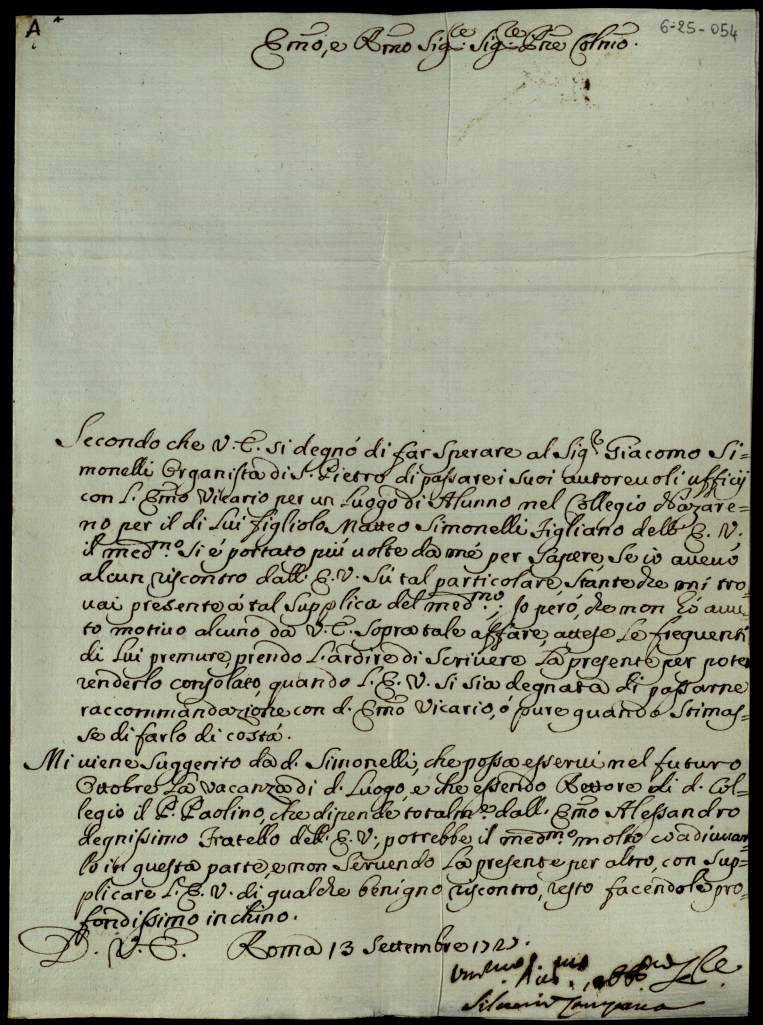 A
6-25-054
Emo, e Rmo Sigre Sigre Pne Colmo.
Secondo che V. E. si degnó di far sperare al Sigr Giacomo Si=
monelli Organista di S. Pietro di passare i suoi autorevoli ufficij
con l. Emo Vicario per un Luogo di Alunno nel Collegio Nazare=
no per il di Lui figliolo Matteo Simonelli Figliano dell. E. V.
il medmo si é portato piú volte da mé per sapere, se io avevo
alcun riscontro dall. E. V. sú tal particolare, stante che mi tro=
vai presente á tal supplica del medmo; Io peró, che non hó avu=
to motivo alcuno da V. E. sopra tale affare, attese le frequenti
di Lui premure, prendo l. ardire di scrivere la presente per poter
renderlo consolato, quando l. E. V. si sia degnata di passarne
raccommandazione con d. Emo Vicario, ó pure quando stimas=
se di farlo di costá.
Mi viene suggerito da d. Simonelli, che possa esservi nel futuro
Ottobre la vacanza di d. Luogo, e che essendo Rettore di d. Col=
legio il P. Paolino, che dipende totalme dall. Emo Alessandro
degnissimo Fratello dell. E. V., potrebbe il medmo molto coadiuvar=
lo in questa parte, e non servendo la presente per altro, con sup=
plicare l. E. V. di qualche benigno riscontro, resto facendole pro=
fondissimo inchino.
D. V. E. Roma 13 Settembre 1727.
Silvio Campana